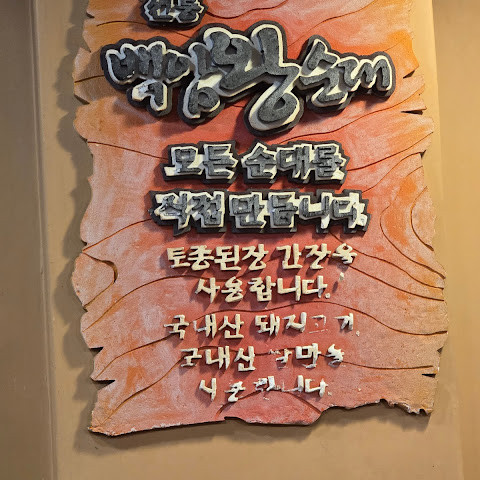 백암왕순대
모든 순대를
직접 만듭니다.
토종된장 간장을
사용합니다.
국내산 돼지고기,
국내산